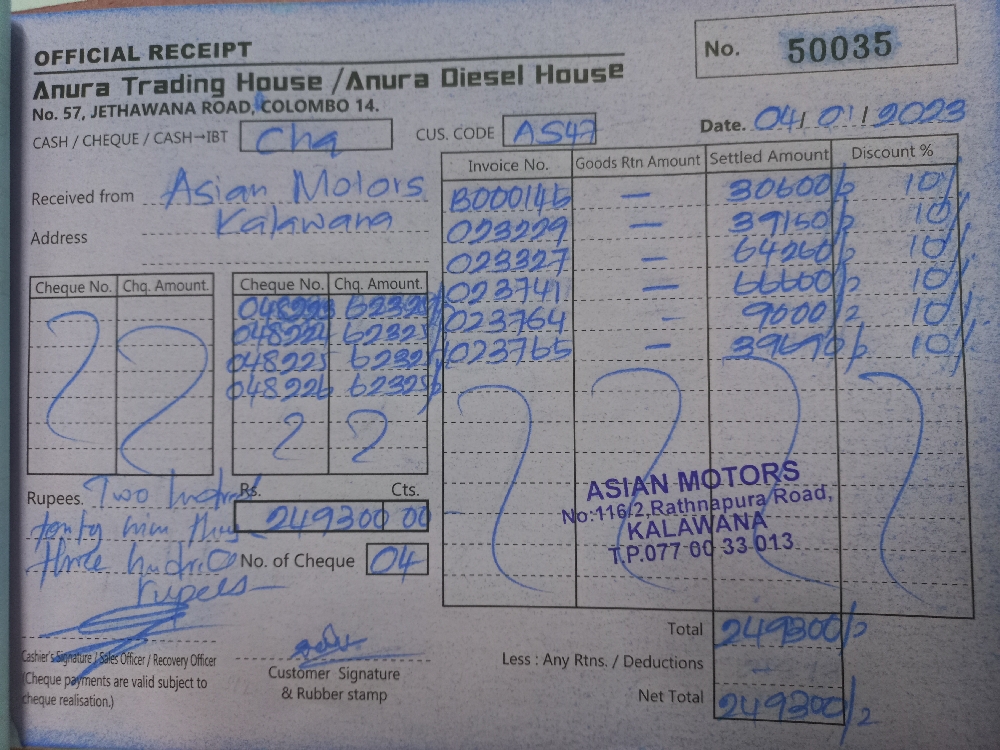 OFFICIAL RECEIPT
No. 50035
Anura Trading House / Anura Diesel House
No. 57, JETHAWANA ROAD, COLOMBO 14.
CASH / CHEQUE / CASH→IBT Chq
CUS. CODE AS47
Date. 04/01/2023
Received from Asian Motors
Address Kalawana
Invoice No. Goods Rtn Amount Settled Amount Discount %
B000146 — 30600/= 10%
023229 — 39150/= 10%
023327 — 64260/= 10%
023741 — 66600/= 10%
023764 - 9000/= 10%
023765 — 39690/= 10%
Cheque No. Chq. Amount.
Cheque No. Chq. Amount.
048223 62325/=
048224 62325/=
048225 62325/=
048226 62325/=
Rupees. Two hundred
forty nine thus
three hundred
rupees
Rs. Cts.
249300 00
No. of Cheque 04
ASIAN MOTORS
No:116/2,Rathnapura Road,
KALAWANA
T.P.077 00 33 013
Total 249300/=
Less : Any Rtns. / Deductions —
Net Total 249300/=
Cashier's Signature / Sales Officer / Recovery Officer
(Cheque payments are valid subject to
cheque realisation.)
Customer Signature
& Rubber stamp